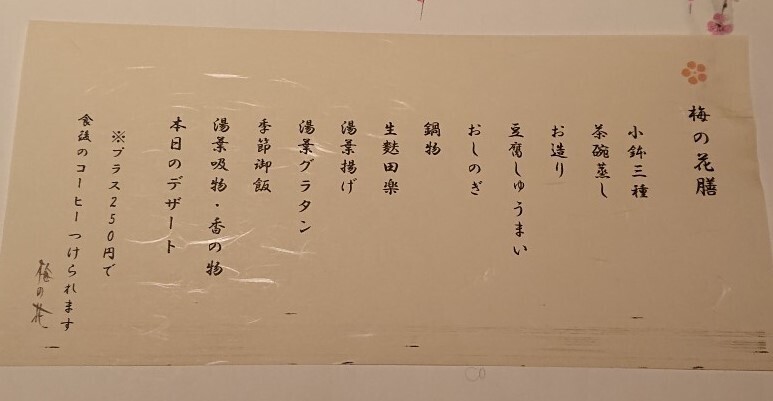 梅の花膳
小鉢三種
茶碗蒸し
お造り
豆腐しゅうまい
おしのぎ
鍋物
生麩田楽
湯葉揚げ
湯葉グラタン
季節御飯
湯葉吸物・香の物
本日のデザート
※プラス250円で
食後のコーヒーつけられます
梅の花